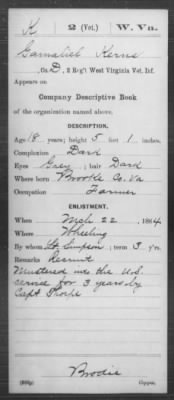 K | 2 (Vet.) | W. Va.
Gamaliel Kerns
, Co. D, 2 Reg't West Virginia Vet. Inf.
Appears on
Company Descriptive Book
of the organization named above.
DESCRIPTION.
Age 18 years; height 5 feet 1 inches.
Complexion Dark
Eyes Grey; hair Dark
Where born Brooke Co. Va
Occupation Farmer
ENLISTMENT.
When Mch 22, 1864.
Where Wheeling
By whom Lt Simpson; term 3 y'rs.
Remarks Recruit
Mustered into the U.S.
service for 3 years by
Capt Thorpe
Brodie
Copyist.